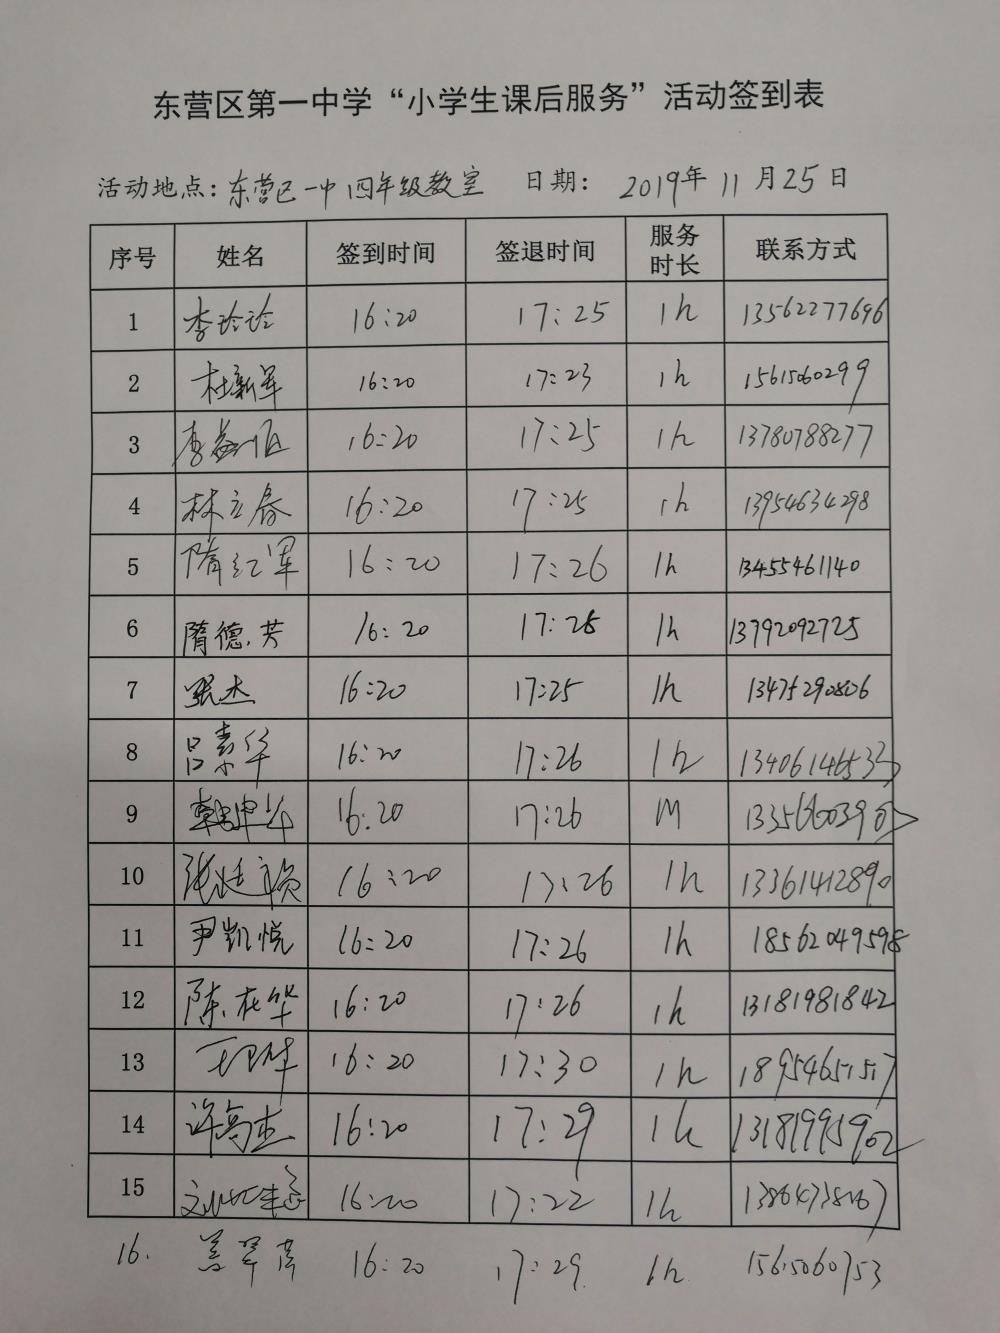 东营区第一中学“小学生课后服务”活动签到表
活动地点：东营区一中四年级教室 日期： 2019年11月25日
序号 姓名 签到时间 签退时间 服务时长 联系方式
1 李玲玲 16:20 17:25 1h 13562277696
2 杜新军 16:20 17:23 1h 15615060299
3 16:20 17:25 1h 13780788277
4 林立春 16:20 17:25 1h 13954634298
5 隋红军 16:20 17:26 1h 13455461140
6 隋德芳 16:20 17:25 1h 13792092725
7 张杰 16:20 17:25 1h 13475290806
8 吕素华 16:20 17:26 1h 13406146533
9 16:20 17:26 1h
10 16:20 17:26 1h 13361412890
11 尹凯悦 16:20 17:26 1h 18562049598
12 陈在华 16:20 17:26 1h 13181981842
13 16:20 17:30 1h 18954651517
14 许高杰 16:20 17:29 1h 13181995902
15 16:20 17:22 1h
16. 16:20 17:29 1h 15615060753